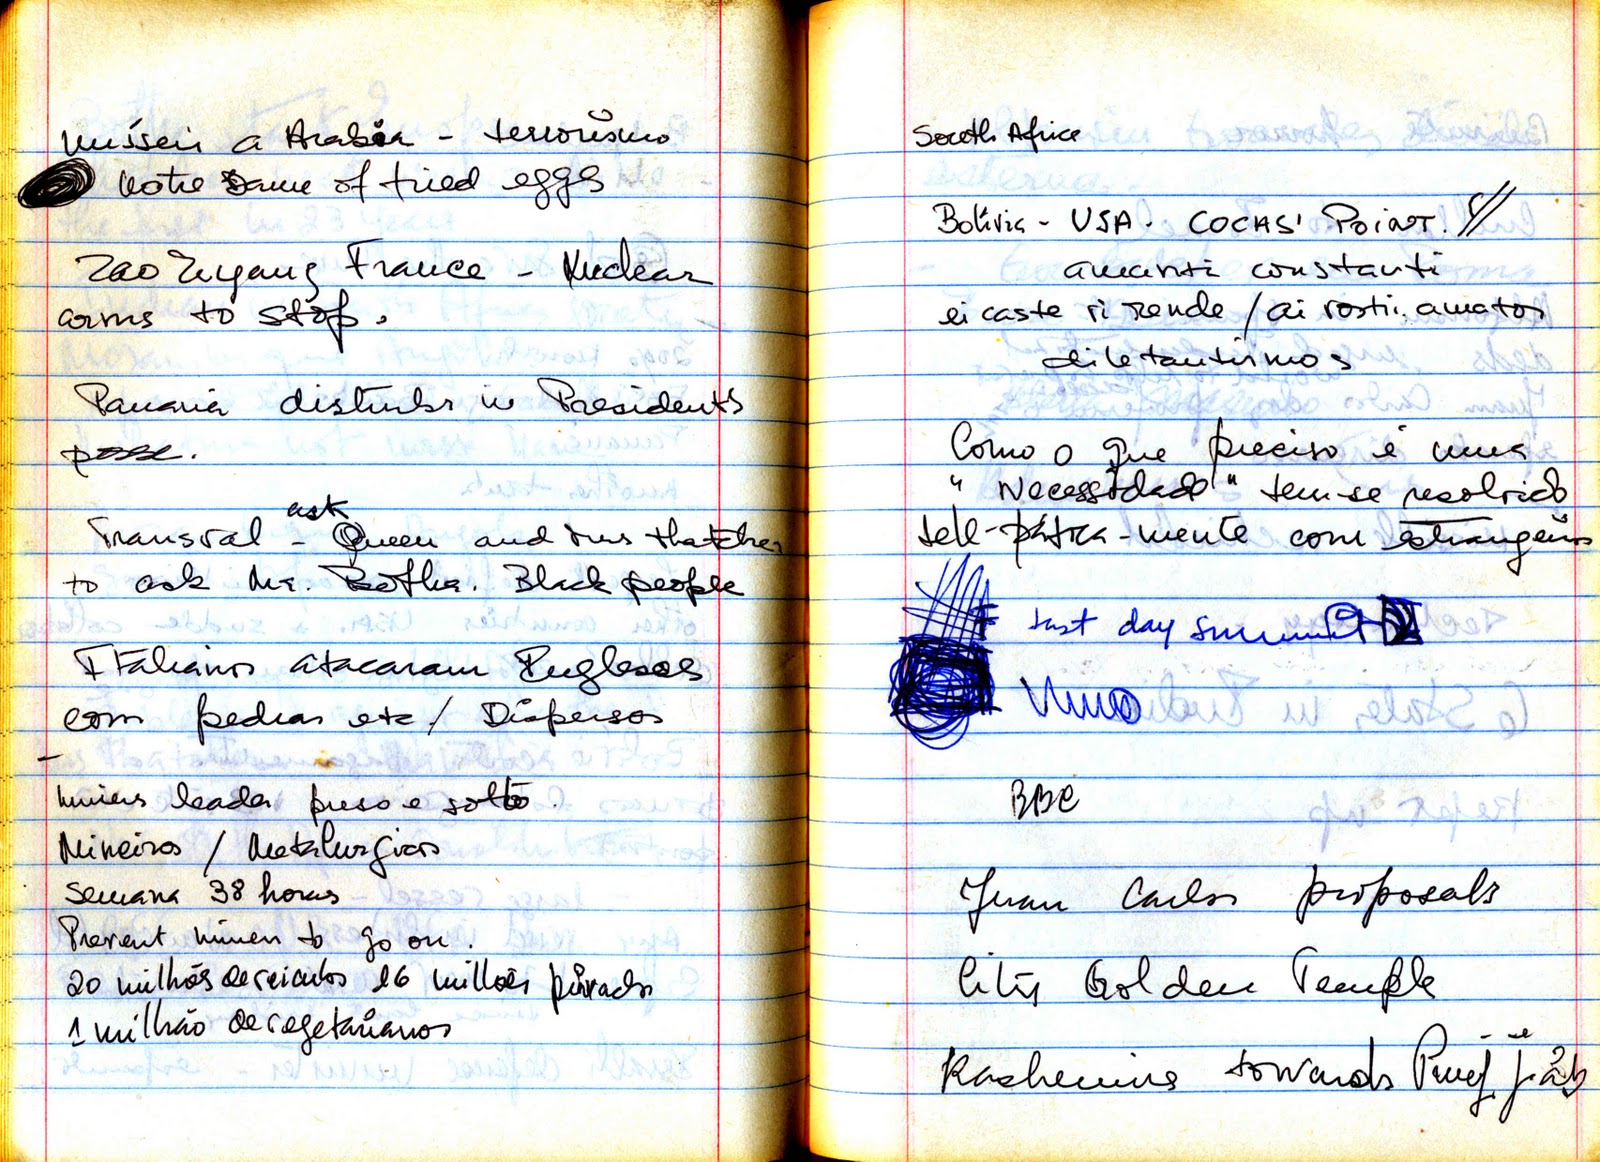 mísseis a Arabia - terrorismo
Notre Dame of fried eggs
Zao Zuyang France - Nuclear
arms to stop.
Panama disturbs in President's
posse.
ask
Transval - Queen and Mrs thatcher
to ask Mr. Botha. Black people
Italianos atacaram Ingleses
com pedras etc / Dispersos
-
miners leader preso e solto.
Mineiros / Metalurgicos
semana 38 horas
Prevent miners to go on.
20 milhões de veiculos 16 milhões privados
1 milhão de vegetarianos
South Africa
Bolívia - USA. COCAS' POINT. //
amanti constanti
ei caste si rende / ai amatos
diletantismos
Como o que preciso é uma
"Necessidade" tem-se resolvido
tele-pática-mente com estrangeiros
Last day summit
BBC
Juan Carlos proposals
City Golden Temple
towards Punjjab